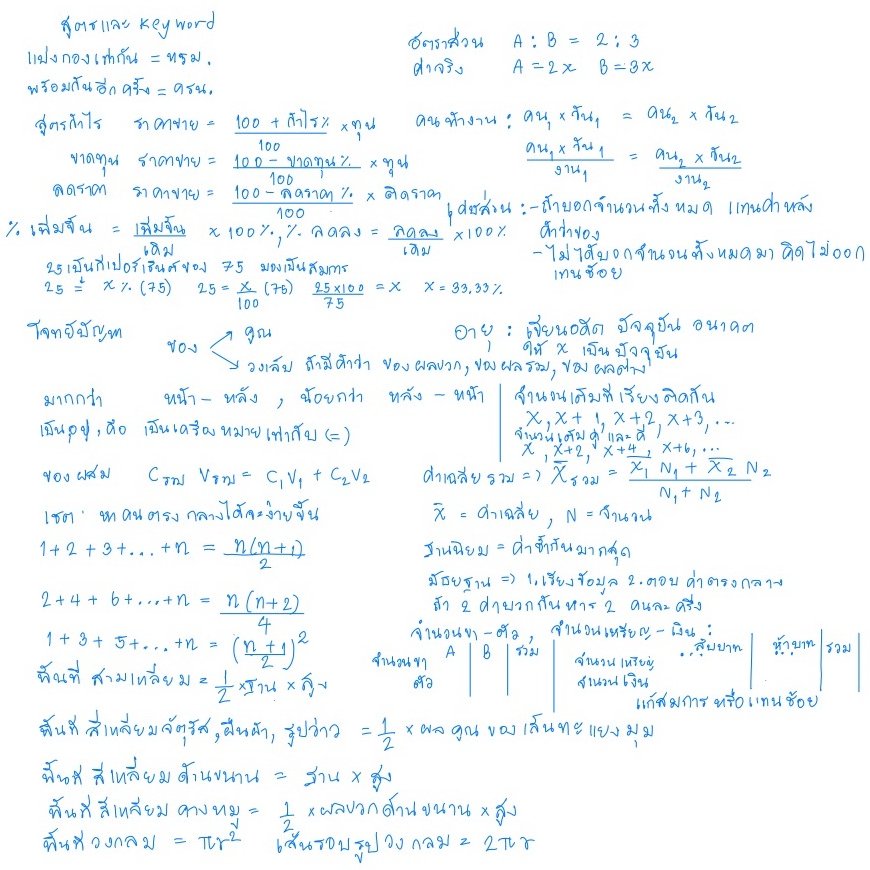 สูตรและ keyword
แบ่งกองเท่ากัน = หรม.
พร้อมกันอีกครั้ง = ครน.
อัตราส่วน A : B = 2 : 3
ค่าจริง A = 2x B = 3x
สูตรกำไร ราคาขาย = (100 + กำไร%)/100 × ทุน
ขาดทุน ราคาขาย = (100 - ขาดทุน%)/100 × ทุน
ลดราคา ราคาขาย = (100 - ลดราคา%)/100 × ติดราคา
คนทำงาน : คน₁ × วัน₁ = คน₂ × วัน₂
(คน₁ × วัน₁)/งาน₁ = (คน₂ × วัน₂)/งาน₂
เศษส่วน : - ถ้าบอกจำนวนทั้งหมด แทนค่าหลัง
คำว่าของ
- ไม่ได้บอกจำนวนทั้งหมดมา คิดไม่ออก
แทนช้อย
% เพิ่มขึ้น = เพิ่มขึ้น/เดิม × 100%, % ลดลง = ลดลง/เดิม × 100%
25 เป็นกี่เปอร์เซ็นต์ของ 75 มองเป็นสมการ
25 = x% (75) 25 = x/100 (75) (25×100)/75 = x x = 33.33%
โจทย์ปัญหา ของ → คูณ
→ วงเล็บ ถ้ามีคำว่า ของผลบวก, ของผลรวม, ของผลต่าง
อายุ : เขียนอดีต ปัจจุบัน อนาคต
ให้ x เป็นปัจจุบัน
มากกว่า หน้า - หลัง , น้อยกว่า หลัง - หน้า
เป็นอยู่, คือ เป็นเครื่องหมายเท่ากับ (=)
จำนวนเต็มที่เรียงติดกัน
x, x+1, x+2, x+3, ...
จำนวนเต็มคู่ และคี่
x, x+2, x+4, x+6, ...
ของผสม Cรวม Vรวม = C₁V₁ + C₂V₂
ค่าเฉลี่ยรวม => x̄รวม = (x̄₁N₁ + x̄₂N₂)/(N₁ + N₂)
เซต หาคนตรงกลางได้จะง่ายขึ้น
x̄ = ค่าเฉลี่ย, N = จำนวน
1+2+3+...+n = n(n+1)/2
ฐานนิยม = ค่าซ้ำกันมากสุด
มัธยฐาน => 1. เรียงข้อมูล 2. ตอบค่าตรงกลาง
ถ้า 2 ค่าบวกกันหาร 2 คนละครึ่ง
2+4+6+...+n = n(n+2)/4
1+3+5+...+n = ((n+1)/2)²
จำนวนขา - ตัว, จำนวนเหรียญ - เงิน :
A B รวม
จำนวนขา
ตัว
สิบบาท ห้าบาท รวม
จำนวนเหรียญ
จำนวนเงิน
แก้สมการ หรือแทนช้อย
พื้นที่ สามเหลี่ยม = 1/2 × ฐาน × สูง
พื้นที่ สี่เหลี่ยมจัตุรัส, ผืนผ้า, รูปว่าว = 1/2 × ผลคูณของเส้นทะแยงมุม
พื้นที่ สี่เหลี่ยมด้านขนาน = ฐาน × สูง
พื้นที่ สี่เหลี่ยม คางหมู = 1/2 × ผลบวกด้านขนาน × สูง
พื้นที่ วงกลม = πr² เส้นรอบรูปวงกลม = 2πr